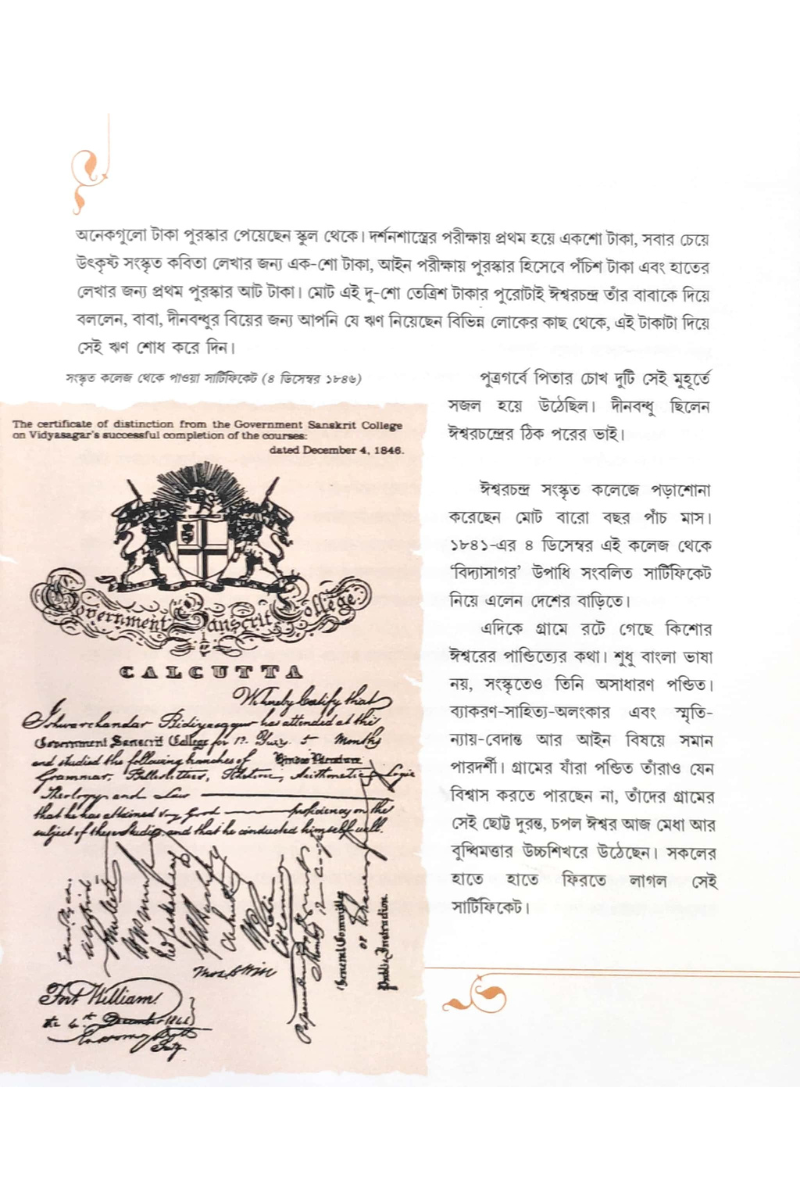 অনেকগুলো টাকা পুরস্কার পেয়েছেন স্কুল থেকে। দর্শনশাস্ত্রের পরীক্ষায় প্রথম হয়ে একশো টাকা, সবার চেয়ে
উৎকৃষ্ট সংস্কৃত কবিতা লেখার জন্য এক-শো টাকা, আইন পরীক্ষায় পুরস্কার হিসেবে পঁচিশ টাকা এবং হাতের
লেখার জন্য প্রথম পুরস্কার আট টাকা। মোট এই দু-শো তেত্রিশ টাকার পুরোটাই ঈশ্বরচন্দ্র তাঁর বাবাকে দিয়ে
বললেন, বাবা, দীনবন্ধুর বিয়ের জন্য আপনি যে ঋণ নিয়েছেন বিভিন্ন লোকের কাছ থেকে, এই টাকাটা দিয়ে
সেই ঋণ শোধ করে দিন।
সংস্কৃত কলেজ থেকে পাওয়া সার্টিফিকেট (৪ ডিসেম্বর ১৮৪৬)
The certificate of distinction from the Government Sanskrit College
on Vidyasagar's successful completion of the courses:
dated December 4, 1846.
Government Sanscrit College
CALCUTTA
We hereby Certify that
Ishwarchandar Bidiyasagur has attended at this
Government Sanscrit College for 12 Years 5 Months
and studied the following branches of Hindu Literature
Grammar, Belles lettres, Rhetoric, Arithmetic, Logic
Theology and Law
that he has attained very Good proficiency on the
subject of these studies and that he conducted himself well.
Thos. B Wise
General Committee
of
Public Instruction
Fort William
the 4th December
পুত্রগর্বে পিতার চোখ দুটি সেই মুহূর্তে
সজল হয়ে উঠেছিল। দীনবন্ধু ছিলেন
ঈশ্বরচন্দ্রের ঠিক পরের ভাই।
ঈশ্বরচন্দ্র সংস্কৃত কলেজে পড়াশোনা
করেছেন মোট বারো বছর পাঁচ মাস।
১৮৪১-এর ৪ ডিসেম্বর এই কলেজ থেকে
'বিদ্যাসাগর' উপাধি সংবলিত সার্টিফিকেট
নিয়ে এলেন দেশের বাড়িতে।
এদিকে গ্রামে রটে গেছে কিশোর
ঈশ্বরের পান্ডিত্যের কথা। শুধু বাংলা ভাষা
নয়, সংস্কৃতেও তিনি অসাধারণ পন্ডিত।
ব্যাকরণ-সাহিত্য-অলংকার এবং স্মৃতি-
ন্যায়-বেদান্ত আর আইন বিষয়ে সমান
পারদর্শী। গ্রামের যাঁরা পন্ডিত তাঁরাও যেন
বিশ্বাস করতে পারছেন না, তাঁদের গ্রামের
সেই ছোট্ট দুরন্ত, চপল ঈশ্বর আজ মেধা আর
বুদ্ধিমত্তার উচ্চশিখরে উঠেছেন। সকলের
হাতে হাতে ফিরতে লাগল সেই
সার্টিফিকেট।